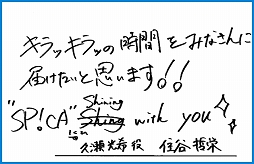 キラッキラッの時間をみなさんに
届けたいと思います!!
Shining
"SP!CA" with you
久瀬光希役 住谷哲栄